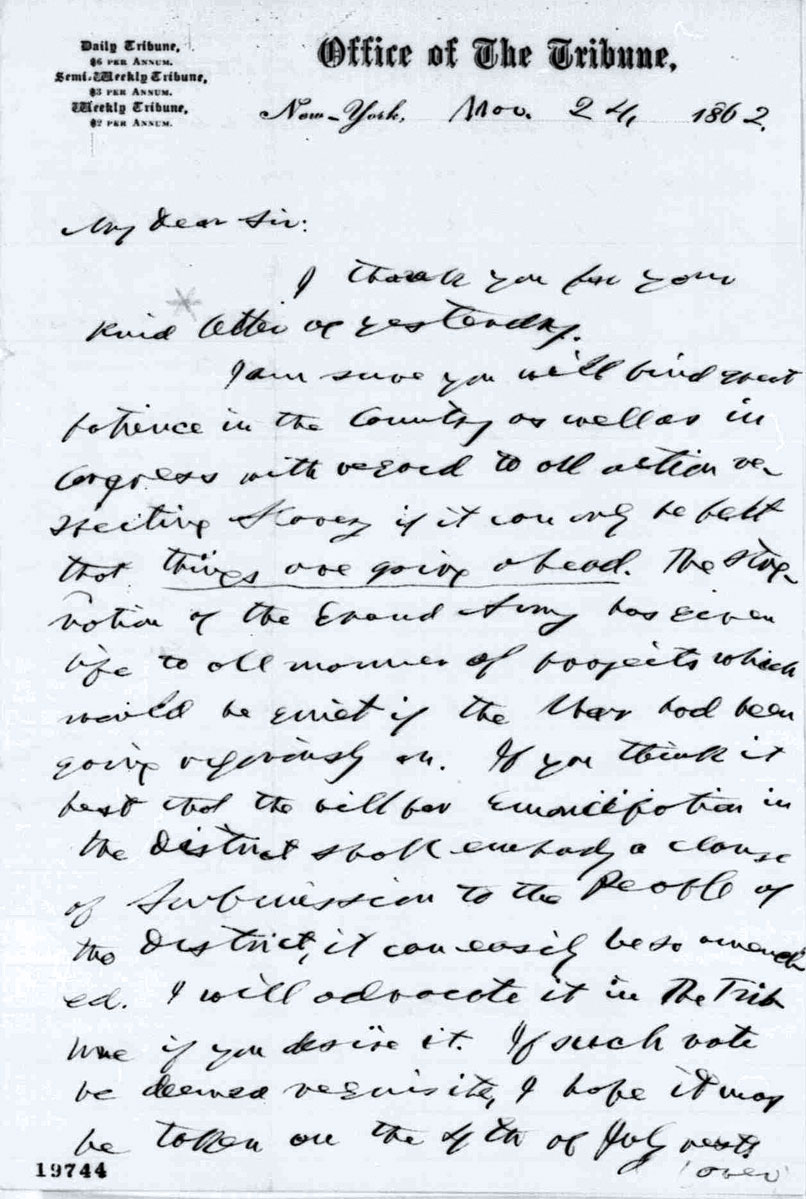 Daily Tribune,
$6 PER ANNUM.
Semi-Weekly Tribune,
$3 PER ANNUM.
Weekly Tribune,
$2 PER ANNUM.
Office of The Tribune,
New-York, Mar. 24, 1862.
My Dear Sir:
I thank you for your
kind letter of yesterday.
I am sure you will find great
patience in the Country as well as in
Congress with regard to all action re-
specting Slavery if it can only be felt
that things are going ahead. The stag-
nation of the Grand Army has given
life to all manner of projects which
would be quiet if the War had been
going vigorously on. If you think it
best that the bill for Emancipation in
the District shall embody a clause
of Submission to the People of
the District, it can easily be so amend-
ed. I will advocate it in The Trib
une if you desire it. If such vote
be deemed requisite, I hope it may
be taken on the 4th of July next.
(over)
19744